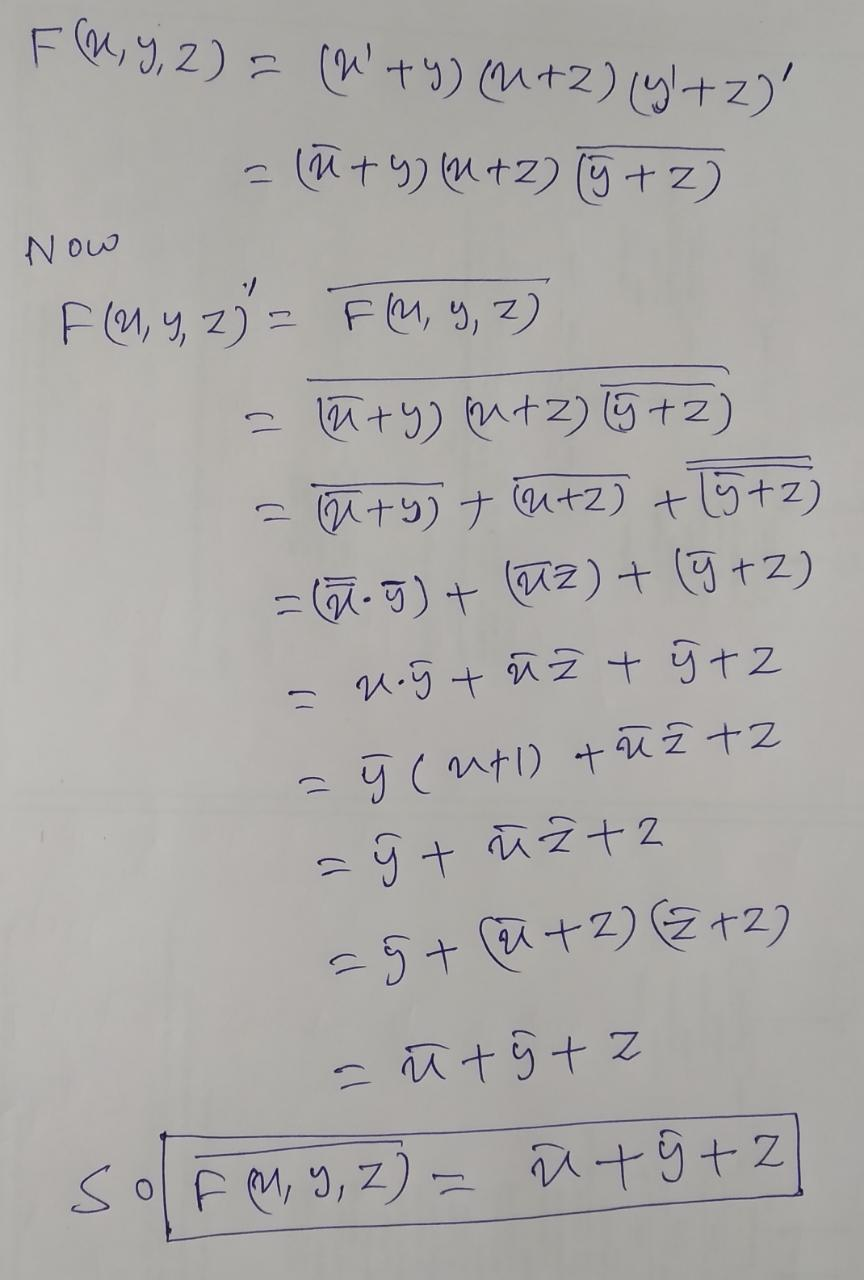 F(x, y, z) = (x' + y) (x+z) (y'+z)'
= (x̄ + y) (x+z) \overline{(ȳ + z)}
Now
F(x, y, z)' = \overline{F(x, y, z)}
= \overline{(x̄+y) (x+z) \overline{(ȳ+z)}}
= \overline{(x̄+y)} + \overline{(x+z)} + \overline{\overline{(ȳ+z)}}
= (x̿·ȳ) + (x̄z̄) + (ȳ+z)
= x·ȳ + x̄z̄ + ȳ+z
= ȳ (x+1) + x̄z̄ + z
= ȳ + x̄z̄ + z
= ȳ + (x̄+z) (z̄+z)
= x̄ + ȳ + z
So \overline{F(x, y, z)} = x̄ + ȳ + z